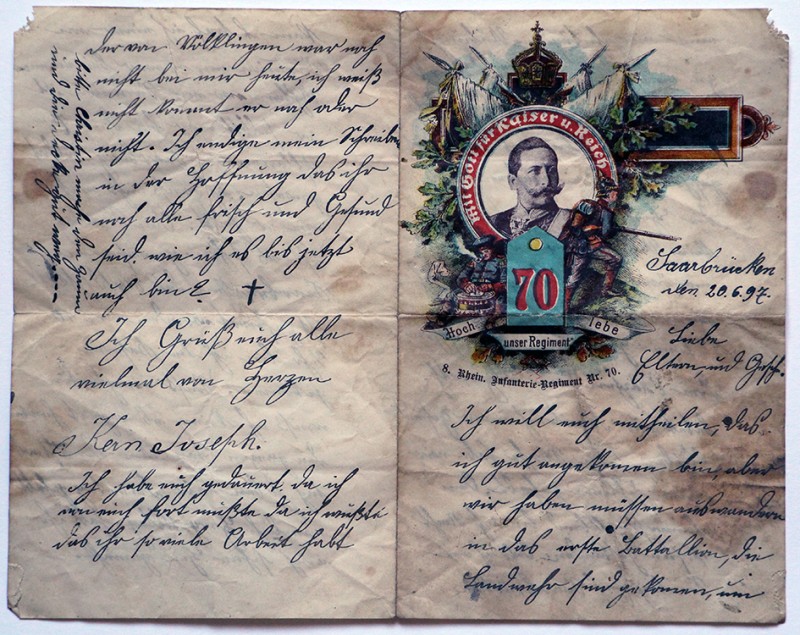 Mit Gott für Kaiser u. Reich
70
Hoch lebe
unser Regiment
8. Rhein. Infanterie-Regiment Nr. 70.
Saarbrücken
den 20.6.97.
Liebe
Eltern, und Gesch.
Ich will euch mittheilen, das
ich gut angekomen bin, aber
wir haben müssen auswandern
in das erste Battallion, die
Landwehr sind gekomen, um
der von Völklingen war noch
nicht bei mir heute, ich weiß
nicht kommt er noch oder
nicht. Ich endige mein Schreiben
in der Hoffnung das ihr
noch alle frisch und Gesund
seid. wie ich es bis jetzt
auch bin?
Ich Grüß euch alle
vielmal von Herzen
Kern Joseph.
Ich habe euch gedauert, da ich
von euch fort mußte da ich wußte
das ihr so viele Arbeit habt
bitte mach den
und